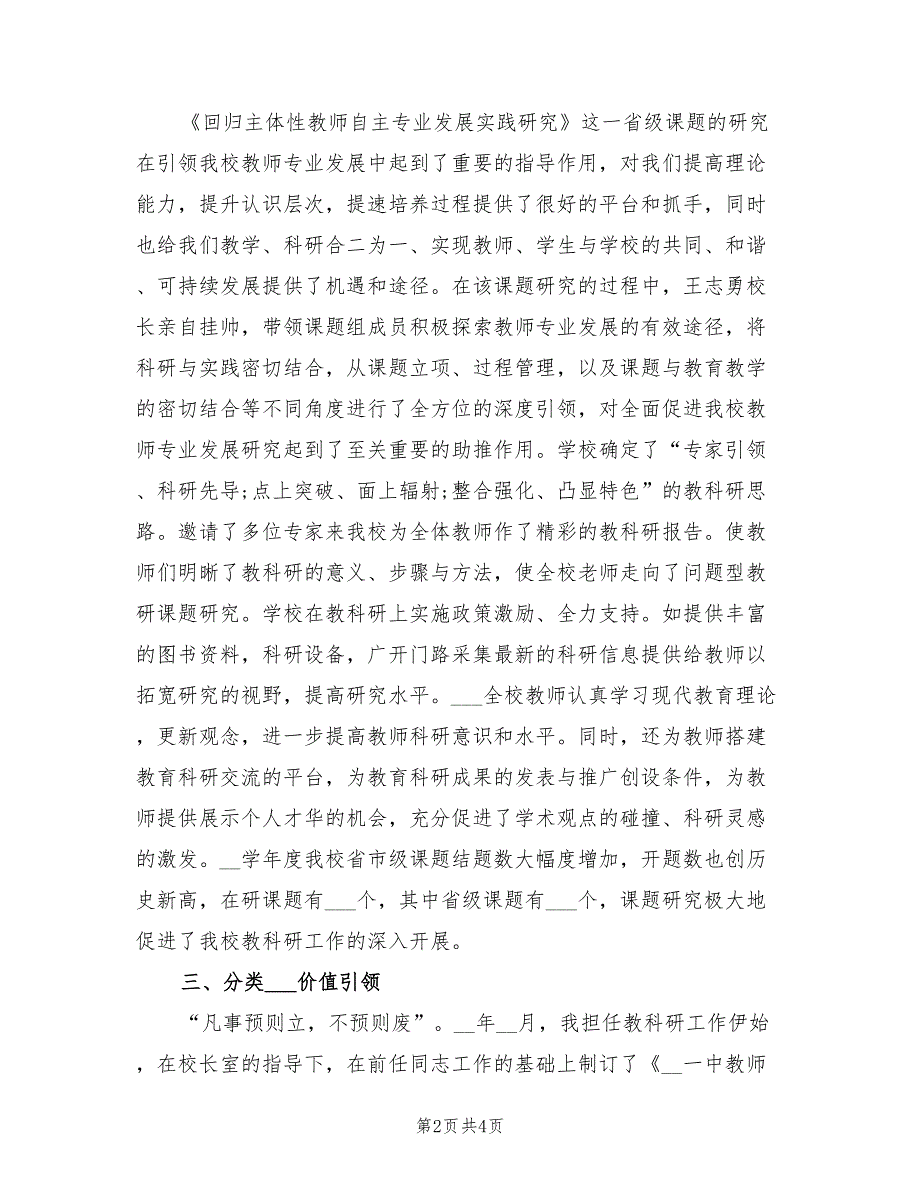 《回归主体性教师自主专业发展实践研究》这一省级课题的研究
在引领我校教师专业发展中起到了重要的指导作用，对我们提高理论
能力，提升认识层次，提速培养过程提供了很好的平台和抓手，同时
也给我们教学、科研合二为一、实现教师、学生与学校的共同、和谐
、可持续发展提供了机遇和途径。在该课题研究的过程中，王志勇校
长亲自挂帅，带领课题组成员积极探索教师专业发展的有效途径，将
科研与实践密切结合，从课题立项、过程管理，以及课题与教育教学
的密切结合等不同角度进行了全方位的深度引领，对全面促进我校教
师专业发展研究起到了至关重要的助推作用。学校确定了“专家引领
、科研先导;点上突破、面上辐射;整合强化、凸显特色”的教科研思
路。邀请了多位专家来我校为全体教师作了精彩的教科研报告。使教
师们明晰了教科研的意义、步骤与方法，使全校老师走向了问题型教
研课题研究。学校在教科研上实施政策激励、全力支持。如提供丰富
的图书资料，科研设备，广开门路采集最新的科研信息提供给教师以
拓宽研究的视野，提高研究水平。___全校教师认真学习现代教育理论
，更新观念，进一步提高教师科研意识和水平。同时，还为教师搭建
教育科研交流的平台，为教育科研成果的发表与推广创设条件，为教
师提供展示个人才华的机会，充分促进了学术观点的碰撞、科研灵感
的激发。__学年度我校省市级课题结题数大幅度增加，开题数也创历
史新高，在研课题有___个，其中省级课题有___个，课题研究极大地
促进了我校教科研工作的深入开展。
三、分类___价值引领
“凡事预则立，不预则废”。__年__月，我担任教科研工作伊始
，在校长室的指导下，在前任同志工作的基础上制订了《__一中教师
第2页共4页